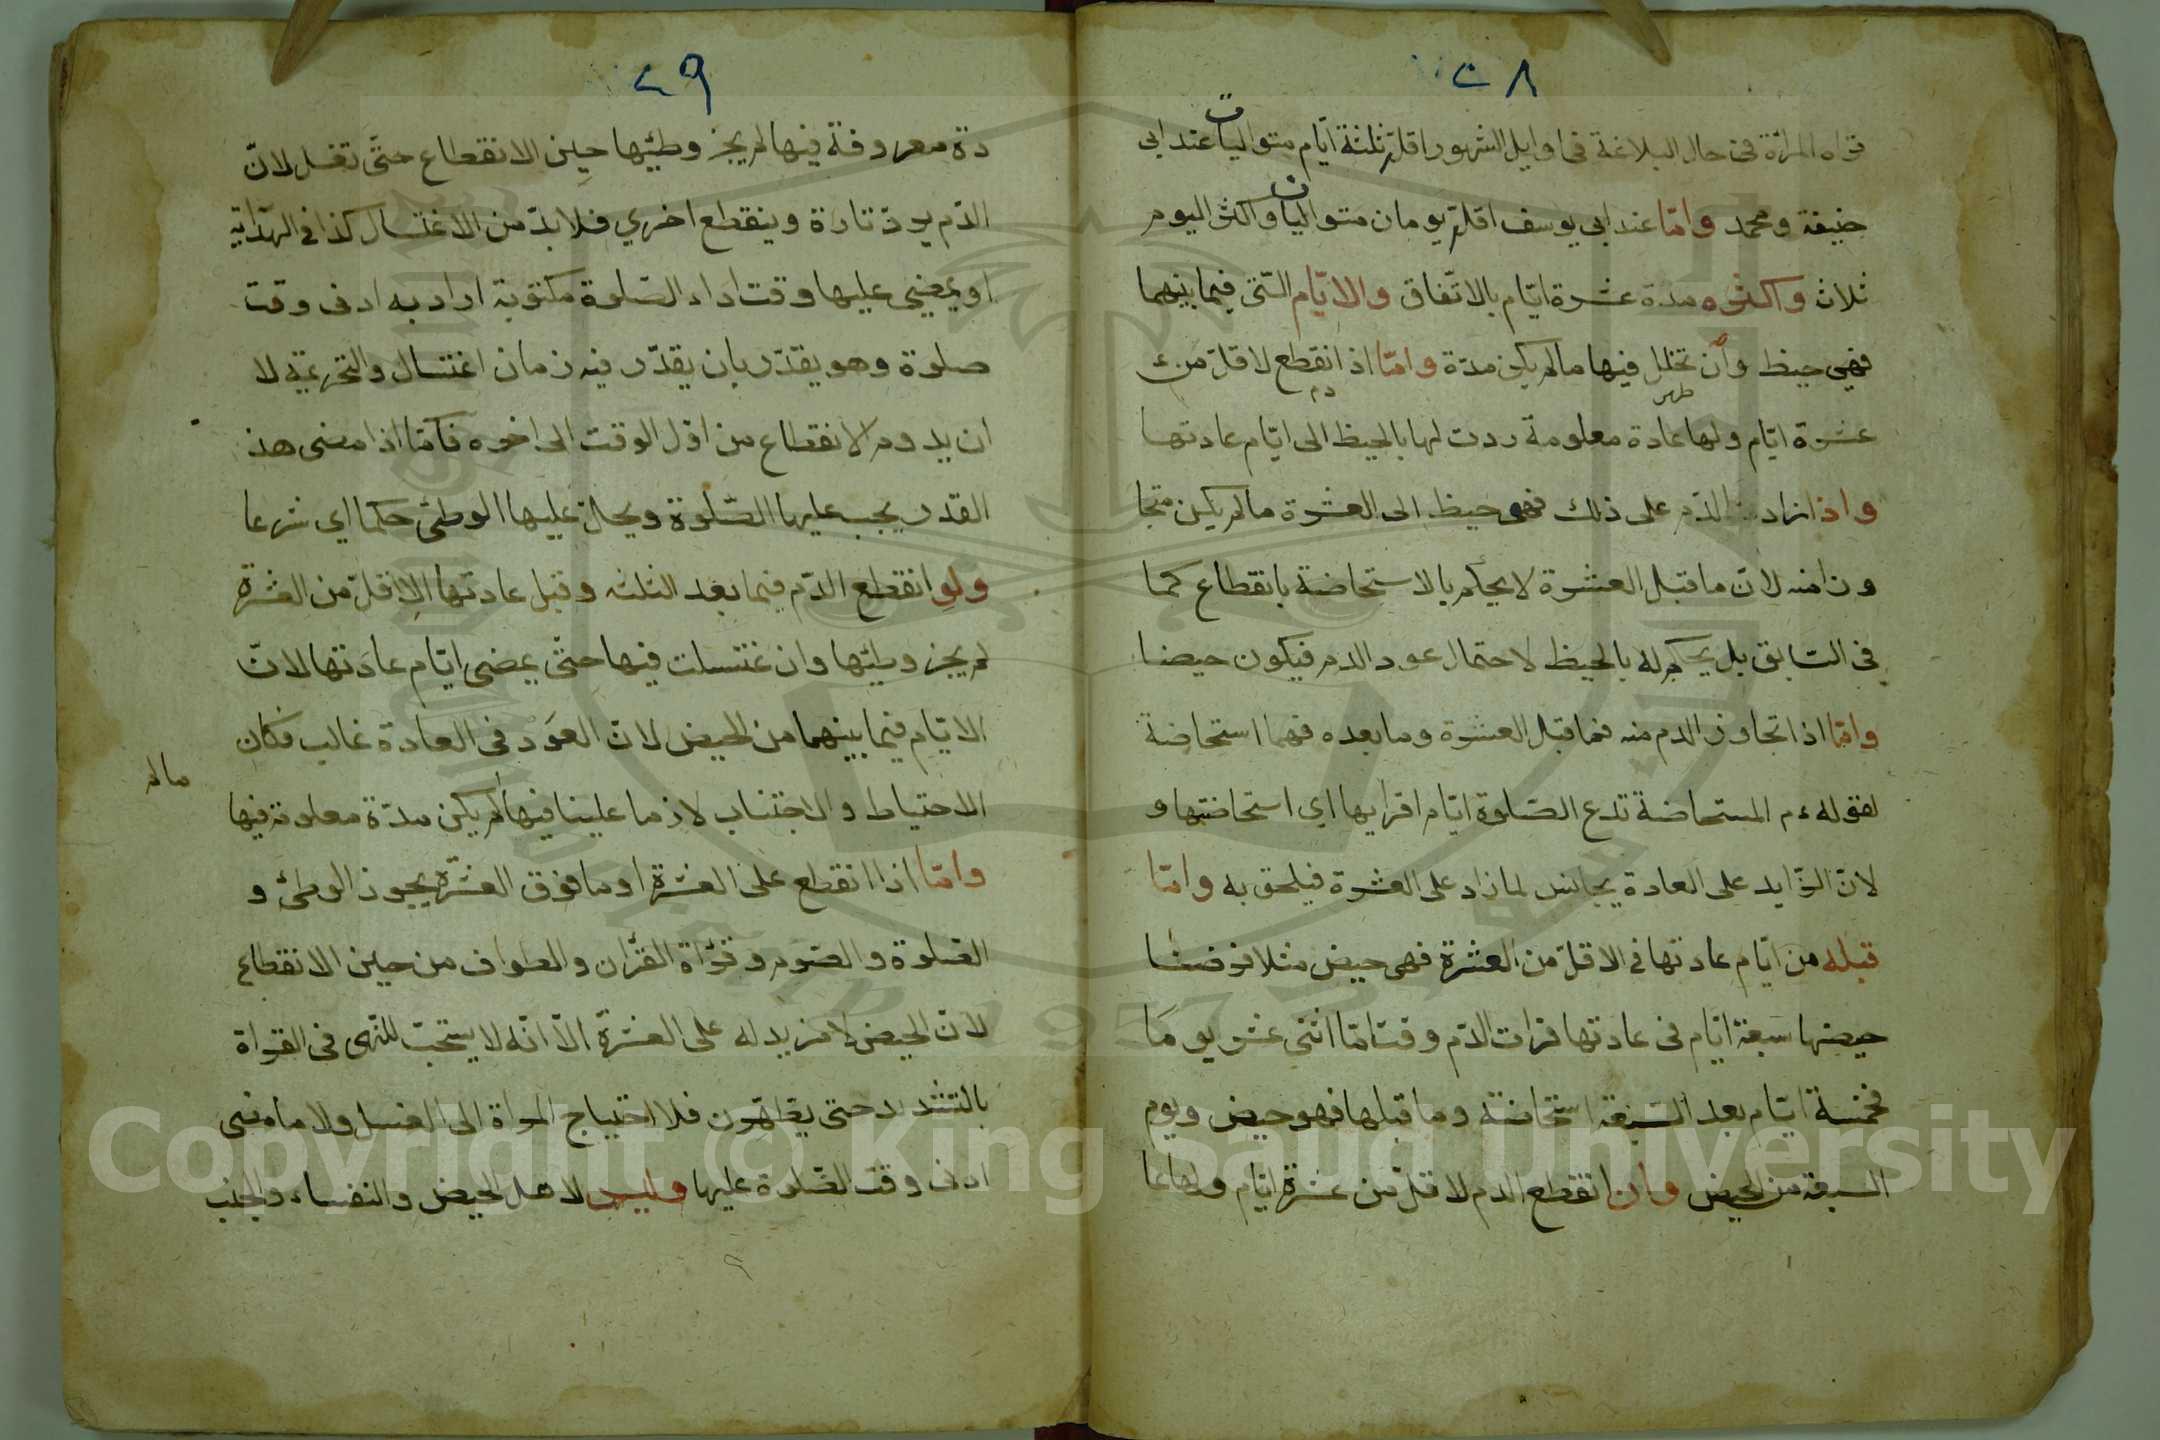 ٢٨
تراه المرٔاة فى حال البلاغة فى اوايل الشهور اقلّه ثلثة ايّام متواليات عند ابى
حنيفة ومحمد وامّا عند ابى يوسف اقلّه يومان متواليان واكثر اليوم
ثلاث واكثره مدة عشرة ايّام بالاتّفاق والايّام التّى فيما بينهما
فهى حيظ وأن تخلل فيها مالم يكن مدّة وامّا اذ انقطع لاقلّ من
طهر دم
عشرة ايّام ولها عادة معلومة ردت لها بالحيظ الى ايّام عادتها
واذا زاد الدّم على ذلك فهى حيظ الى العشرة مالم يكن متجا
وزا منه لانّ ما قبل العشرة لا يحكم بالاستحاضة بانقطاع كما
فى السّابق بل يحكم له بالحيظ لاحتمال عود الدم فيكون حيضا
وامّا اذا تجاوز الدم منه فما قبل العشرة وما بعده فهما استحاضة
لقوله ءم المستحاضة تدع الصّلوة ايّام اقرايها اي استحاضتها و
لانّ الزّايد على العادة يجانس لما زاد على العشرة فيلحق به وامّا
قبله من ايّام عادتها فى الاقلّ من العشرة فهى حيض مثلا فرضنا
حيضها سبعة ايّام فى عادتها فرات الدّم وقتامّا اثنى عشر يومَا
فخمسة ايّام بعد السّبعة استحاضة وما قبلها فهو حيض ويوم
السبعة من الحيض وان انقطع الدم لاقلّ من عشرة ايّام ولها عا
٢٩
دة معروفة فيها لم يجز وطيّها حين الانقطاع حتّى تغسل لانّ
الدّم يردّ تارة وينقطع اخري فلا بدّ من الاغتسال كذا فى الهدايّة
او يمضى عليها وقت اداء الصّلوة مكتوبة اراد به ادنى وقت
صلوة وهو يقدّر بان يقدّر فيه زمان اغتسال والتحريمّة لا
ان يدوم الانقطاع من اوّل الوقت الى اخره فامّا اذا مضى هذ
القدر يجب عليها الصّلوة ويحلّ عليها الوطئ حكما اي شرعا
ولو انقطع الدّم فيما بعد الثلثه وقبل عادتها الاقلّ من العشرة
لم يجز وطيّها وان غتسلت فيها حتّى يمضى ايّام عادتها لانّ
الايّام فيما بينهما من الحيض لانّ العَوْد فى العادة غالب فكان
مالم
الاحتياط والاجتناب لازما علينا فيها لم يكن مدّة معلومة فيها
وامّا اذا انقطع على العشرة او ما فوق العشرة يجوز الوطئ و
الصّلوة والصّوم وقرٔاة القرٔان والطواف من حين الانقطاع
لانّ الحيض لا مزيد له على العشرة الّا انّه لا يستحبّ للنّهى فى القرٔاة
بالتشديد حتى يطّهّرن فلا احتياج المراة الى الغسل ولا ما مضى
ادنى وقت الصّلوة عليها وليس لاهل الحيض والنفساء والجنب
Copyright © King Saud University